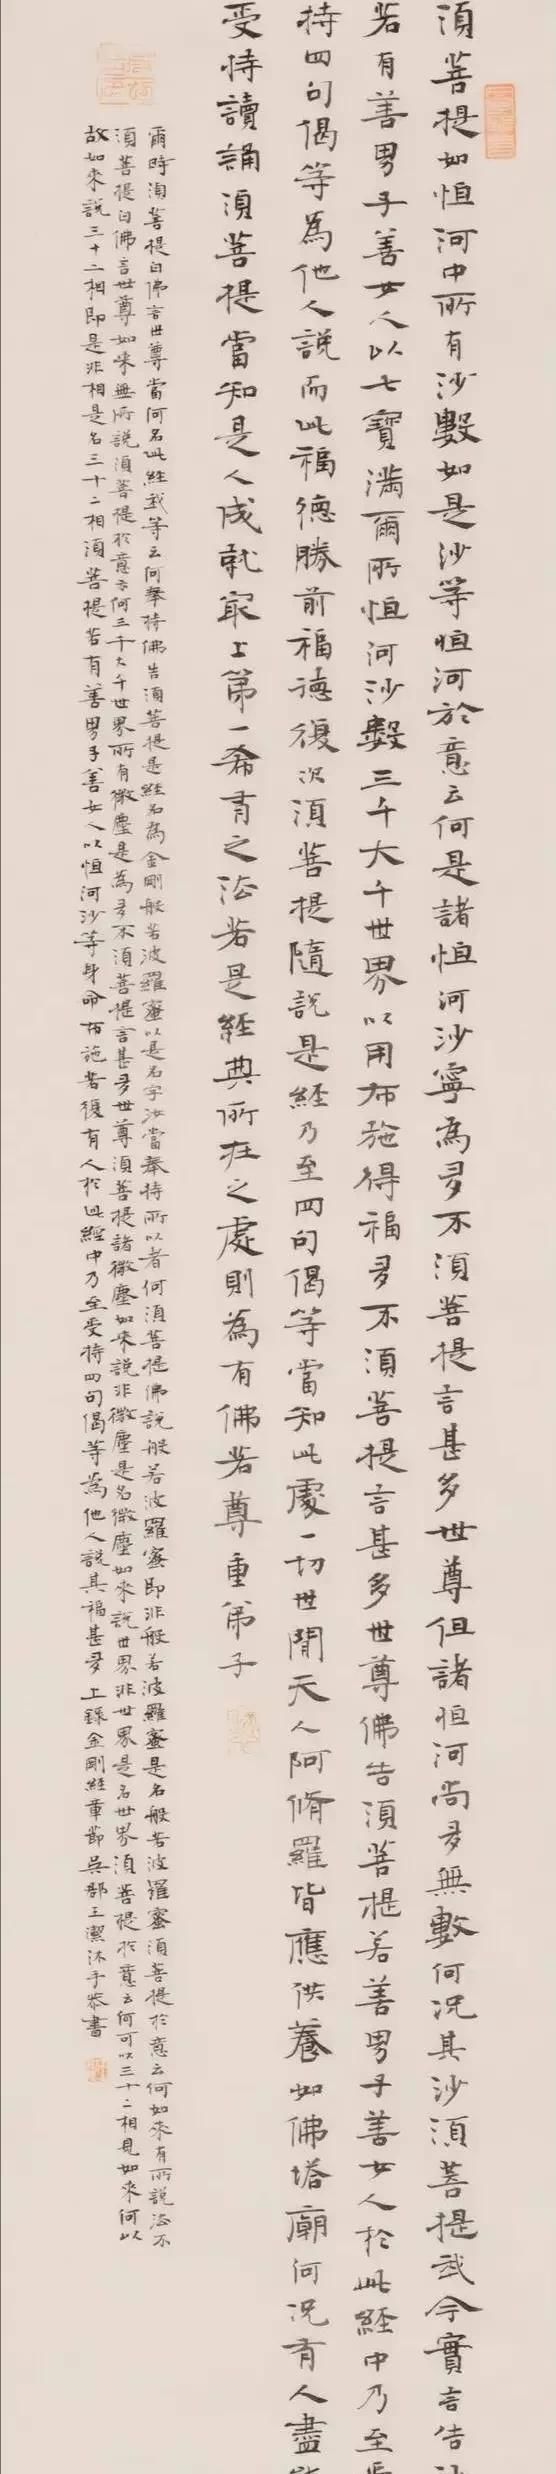 須菩提如恒河中所有沙數如是沙等恒河於意云何是諸恒河沙寧為多不須菩提言甚多世尊但諸恒河尚多無數何況其沙須菩提我今實言告
若有善男子善女人以七寶滿爾所恒河沙數三千大千世界以用布施得福多不須菩提言甚多世尊佛告須菩提若善男子善女人於此經中乃至
持四句偈等為他人說而此福德勝前福德復次須菩提隨說是經乃至四句偈等當知此處一切世間天人阿脩羅皆應供養如佛塔廟何況有人盡
受持讀誦須菩提當知是人成就最上第一希有之法若是經典所在之處則為有佛若尊重弟子
爾時須菩提白佛言世尊當何名此經我等云何奉持佛告須菩提是經名為金剛般若波羅蜜以是名字汝當奉持所以者何須菩提佛說般若波羅蜜即非般若波羅蜜是名般若波羅蜜須菩提於意云何如來有所說法不
須菩提白佛言世尊如來無所說須菩提於意云何三千大千世界所有微塵是為多不須菩提言甚多世尊須菩提諸微塵如來說非微塵是名微塵如來說世界非世界是名世界須菩提於意云何可以三十二相見如來何以
故如來說三十二相即是非相是名三十二相須菩提若有善男子善女人以恒河沙等身命布施若復有人於此經中乃至受持四句偈等為他人說其福甚多 上錄金剛經章節吳郡王潔沐手恭書